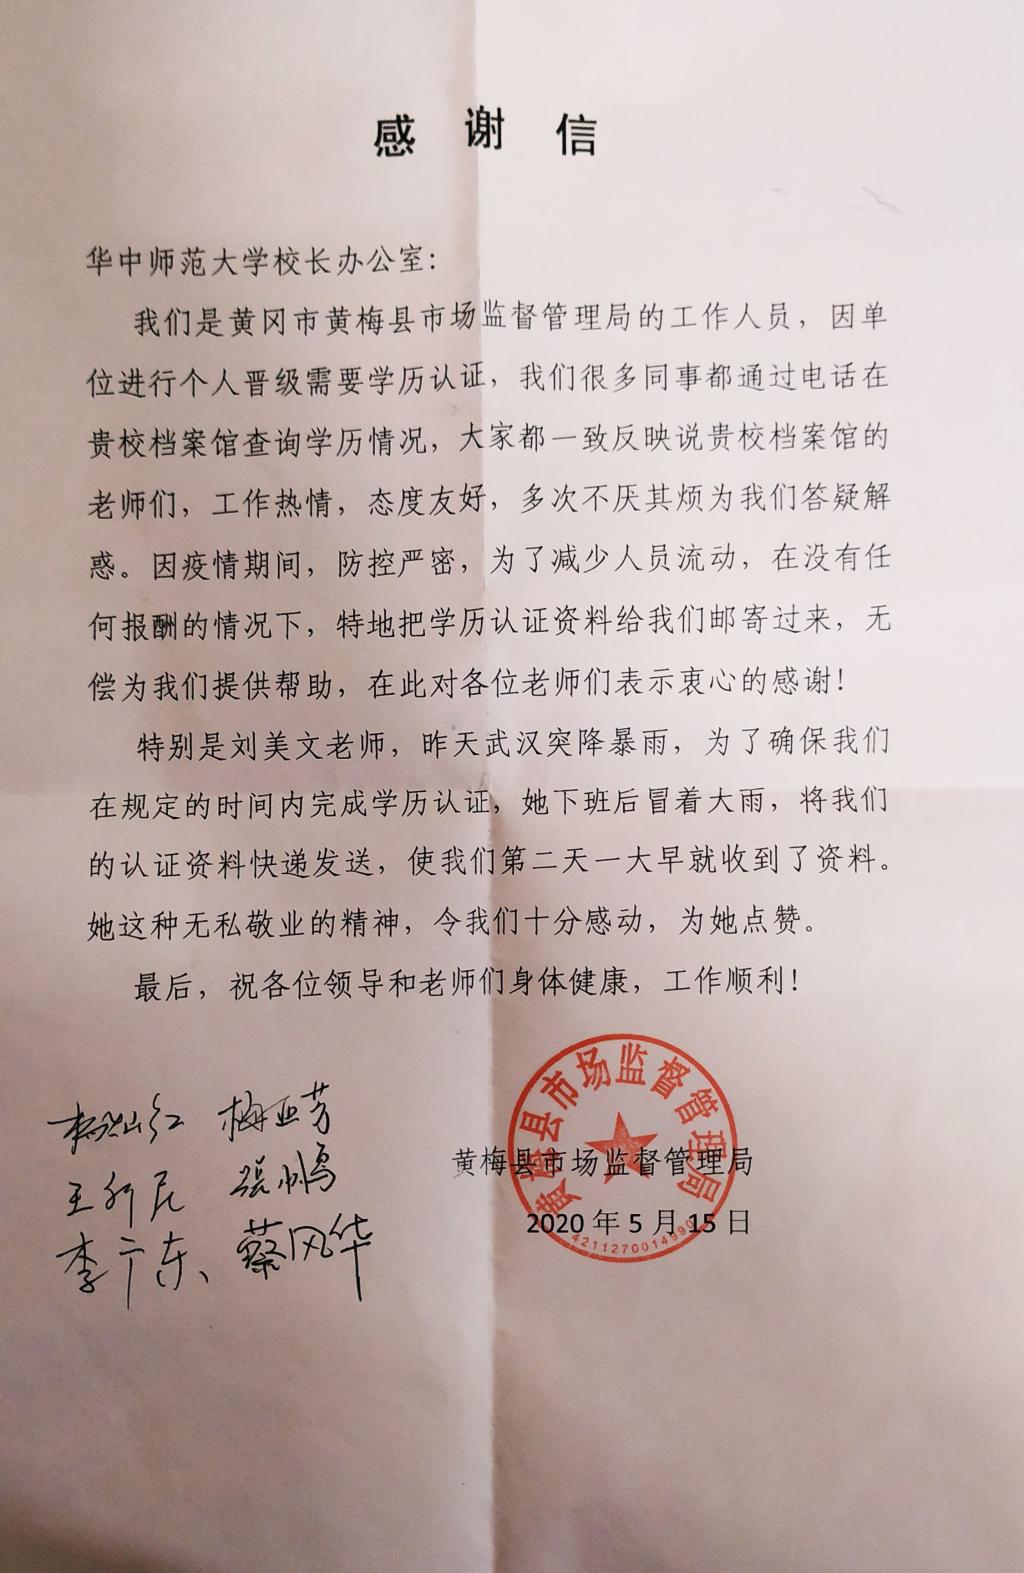 感谢信
华中师范大学校长办公室：
我们是黄冈市黄梅县市场监督管理局的工作人员，因单
位进行个人晋级需要学历认证，我们很多同事都通过电话在
贵校档案馆查询学历情况，大家都一致反映说贵校档案馆的
老师们，工作热情，态度友好，多次不厌其烦为我们答疑解
惑。因疫情期间，防控严密，为了减少人员流动，在没有任
何报酬的情况下，特地把学历认证资料给我们邮寄过来，无
偿为我们提供帮助，在此对各位老师们表示衷心的感谢！
特别是刘美文老师，昨天武汉突降暴雨，为了确保我们
在规定的时间内完成学历认证，她下班后冒着大雨，将我们
的认证资料快递发送，使我们第二天一大早就收到了资料。
她这种无私敬业的精神，令我们十分感动，为她点赞。
最后，祝各位领导和老师们身体健康，工作顺利！
黄梅县市场监督管理局
梅亚芳
黄梅县市场监督管理局
2020 年 5 月 15 日
李广东、蔡风华